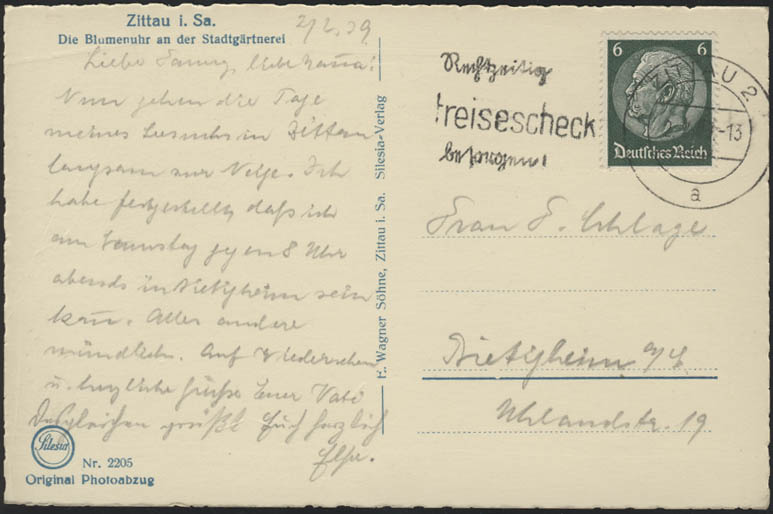 Zittau i. Sa.
Die Blumenuhr an der Stadtgärtnerei
2/2.39
Liebe Fanny, liebe
Nun gehen die Tage
meines Besuchs in Zittau
langsam zur Neige. Ich
habe festgestellt, daß ich
am Samstag gegen 8 Uhr
abends in Bietigheim sein
kann. Alles andere
mündlich. Auf Wiedersehen
u. herzliche Grüße Euer Vati
Desgleichen grüßt Euch herzlich
Else.
Silesia
Nr. 2205
Original Photoabzug
E. Wagner Söhne, Zittau i. Sa. Silesia-Verlag
Rechtzeitig
Reisescheck
besorgen!
6 6
Deutsches Reich
ZITTAU 2
-13
a
Frau F. Schlage
Bietigheim a/E.
Uhlandstr. 19